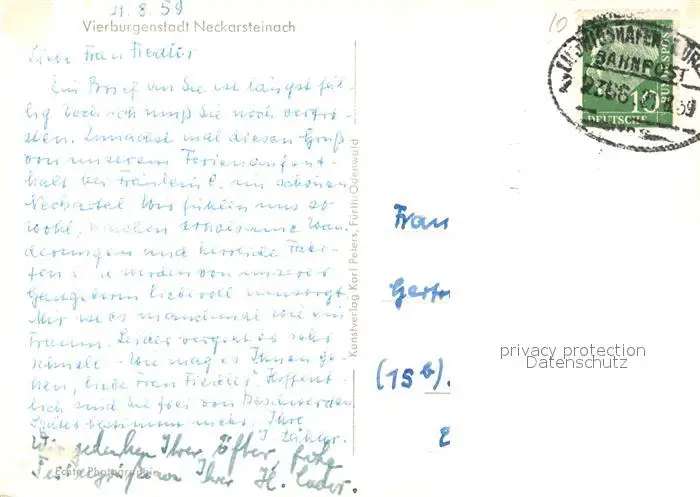 21.8.59
Vierburgenstadt Neckarsteinach
Liebe Frau Fiedler
Ein Brief an Sie ist längst fäl-
lig, doch ich muß Sie noch vertrö-
sten. Zunächst mal diesen Gruß
von unserem Ferienaufent-
halt bei Fräulein E. im schönen
Neckartal. Wir fühlen uns so
wohl, machen erholsame Wan-
derungen und herrliche Fahr-
ten u. werden von unserer
Gastgeberin liebevoll umsorgt.
Mir ist es manchmal wie ein
Traum. Leider vergeht es sehr
schnell. Wie mag es Ihnen ge-
hen, liebe Frau Fiedler? Hoffent-
lich sind Sie frei von Beschwerden
Später mehr, Ihre
Wir gedenken Ihrer öfter, frohe
Ihr H.
Echte Photographie
Kunstverlag Karl Peters, Fürth/Odenwald
10
LUDWIGSHAFEN
BAHNPOST
59
10
DEUTSCHE
BUNDESPOST
Frau
(15b)
privacy protection
Datenschutz